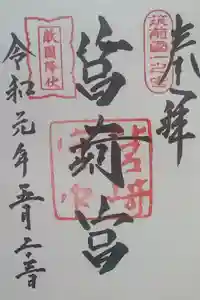 奉拝
筑前國一之宮
筥崎宮
敵國降伏
令和元年五月二十二日